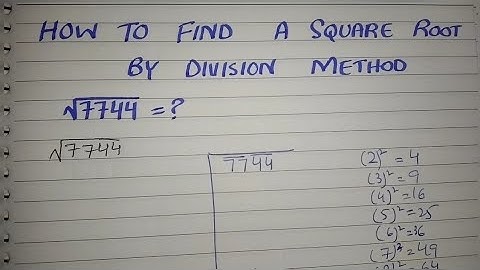 HOW TO FIND A SQUARE ROOT
BY DIVISION METHOD
√7744 = ?
√7744
7744
(2)² = 4
(3)² = 9
(4)² = 16
(5)² = 25
(6)² = 36
(7)² = 49